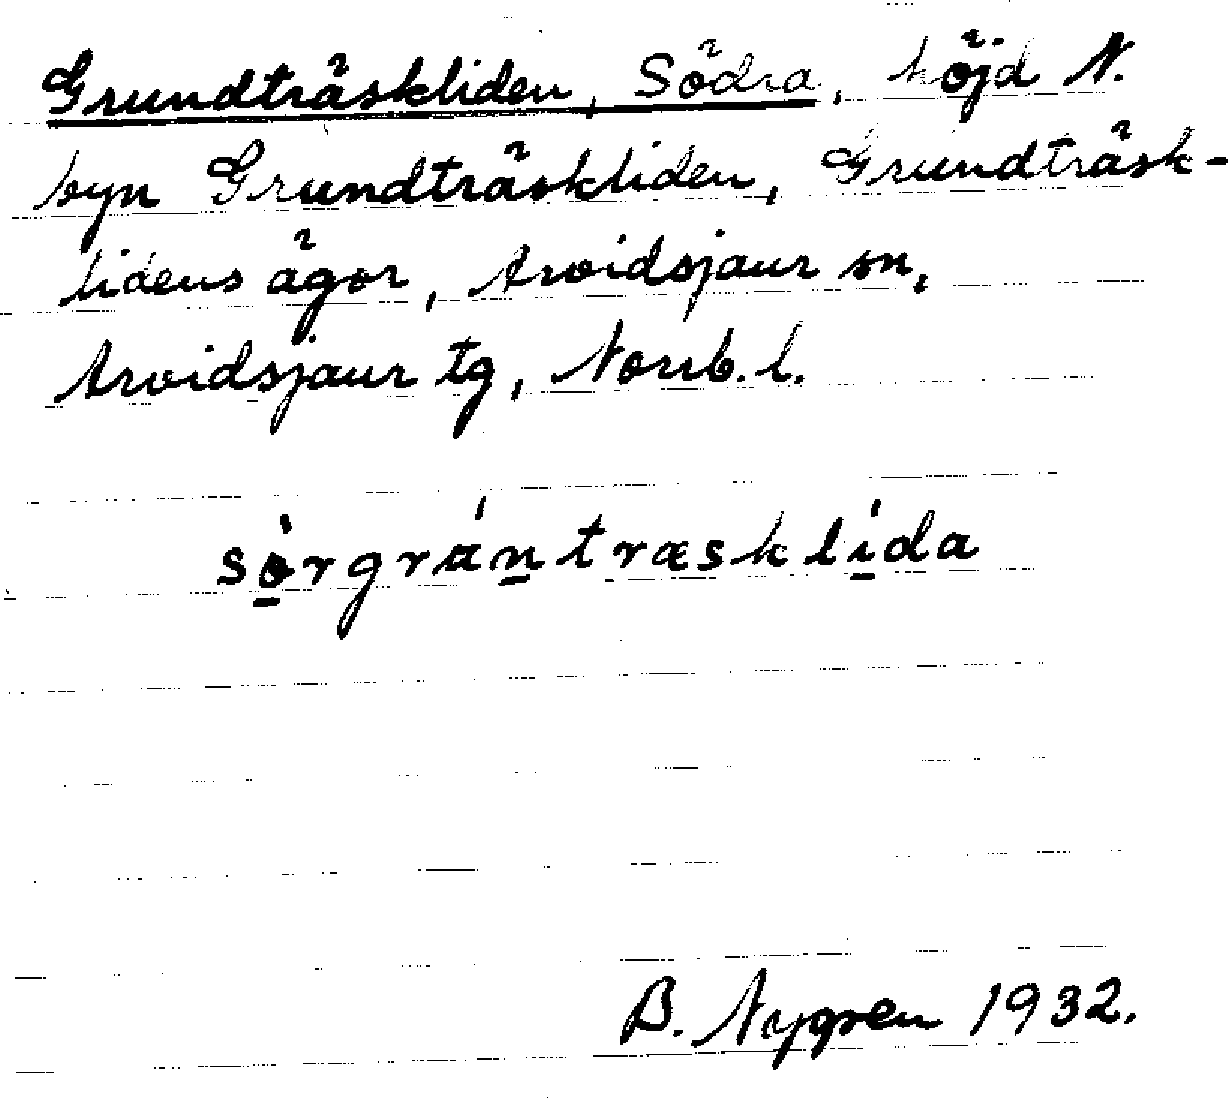 Grundträskliden, Södra, höjd N.
byn Grundträskliden, Grundträsk-
lidens ägor, Arvidsjaur sn,
Arvidsjaur tg, Norrb. l.
sò̱rgráṉtræsklí̱da
B. Nygren 1932.